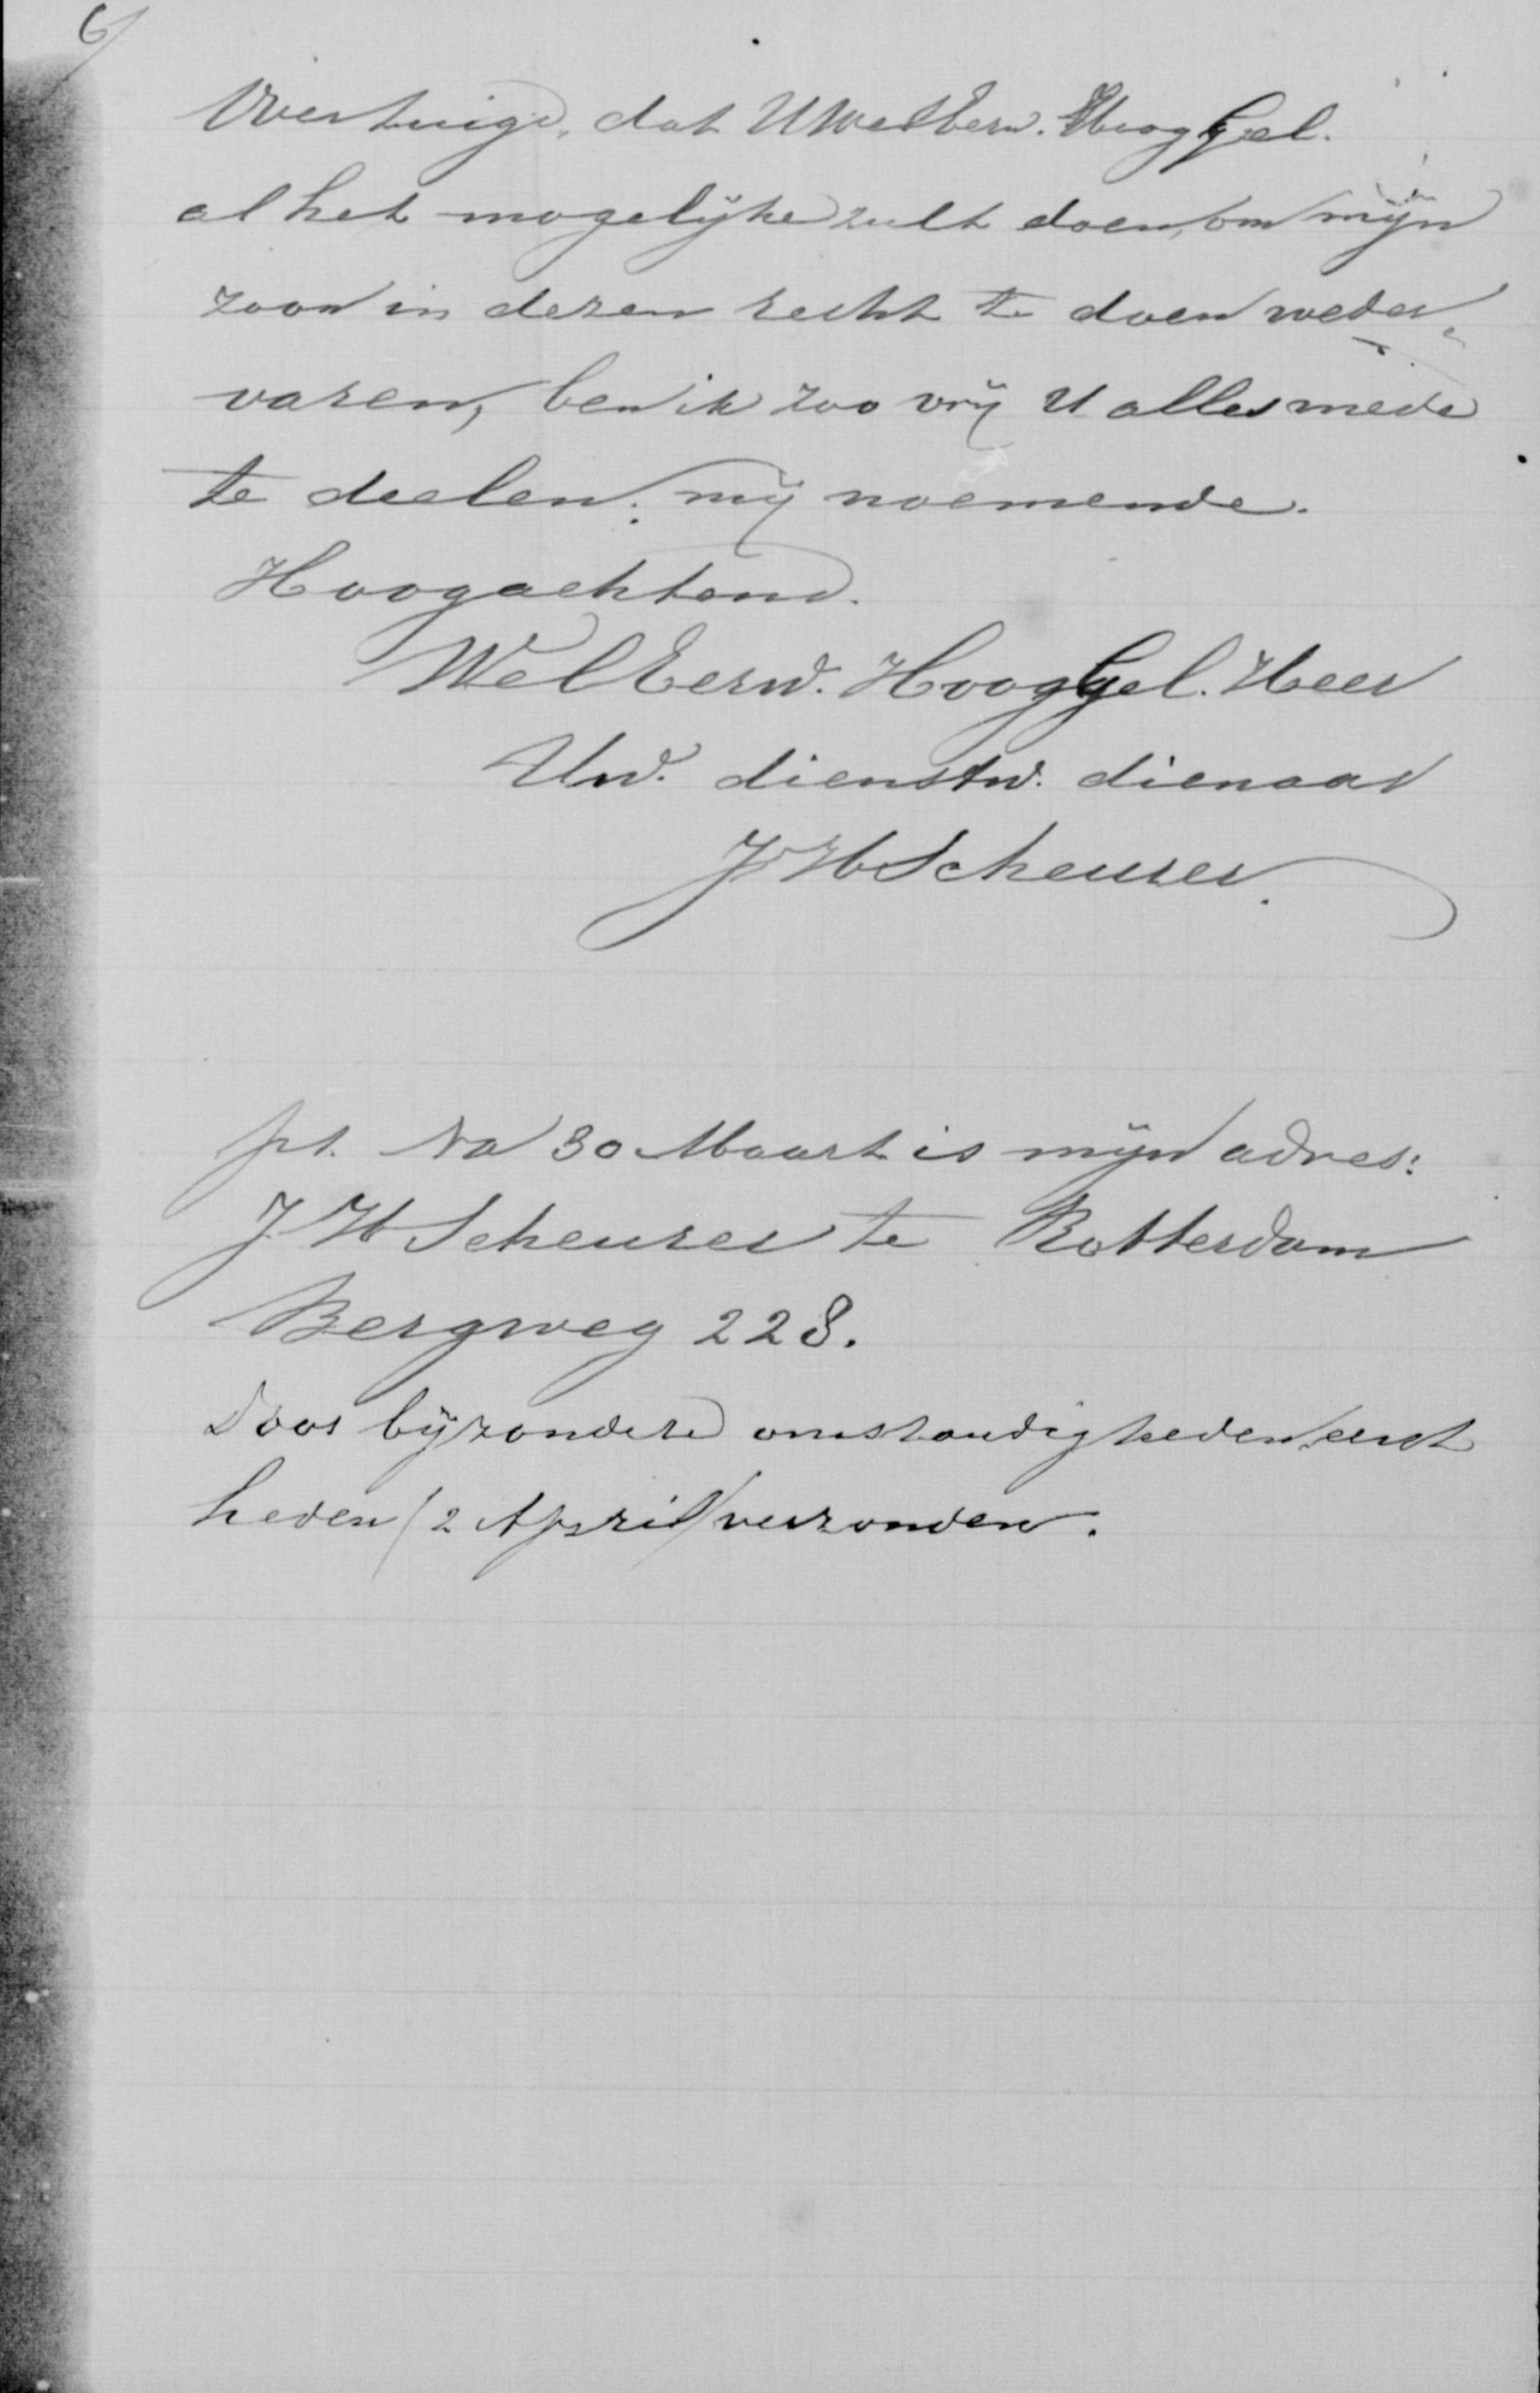 6/
Overtuigd, dat UWelEerw. HoogGel.
al het mogelijke zult doen, om mijn
zoon in dezen recht te doen weder„
varen, ben ik zoo vrij U alles mede
te deelen; mij noemende.
Hoogachtend.
WelEerw. HoogGel. Heer
Uw. dienstw. dienaar
JHScheurer.
ps. Na 30 Maart is mijn adres:
JH Scheurer te Rotterdam
Bergweg 228.
Door bijzondere omstandigheden eerst
heden /2 April/ verzonden.